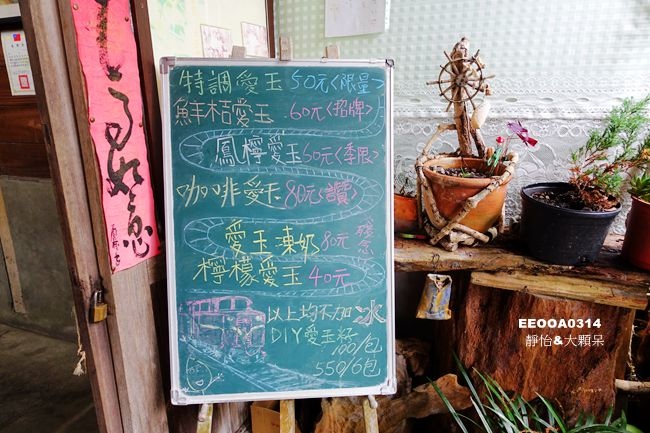 特調愛玉 50元〈限量〉
鮮桔愛玉 60元〈招牌〉
鳳檸愛玉 60元〈季限〉
咖啡愛玉 80元〈讚〉
愛玉凍奶 80元
檸檬愛玉 40元
以上均不加冰
DIY愛玉籽
100/包
550/6包
如意
EEOOA0314
靜怡&大顆呆